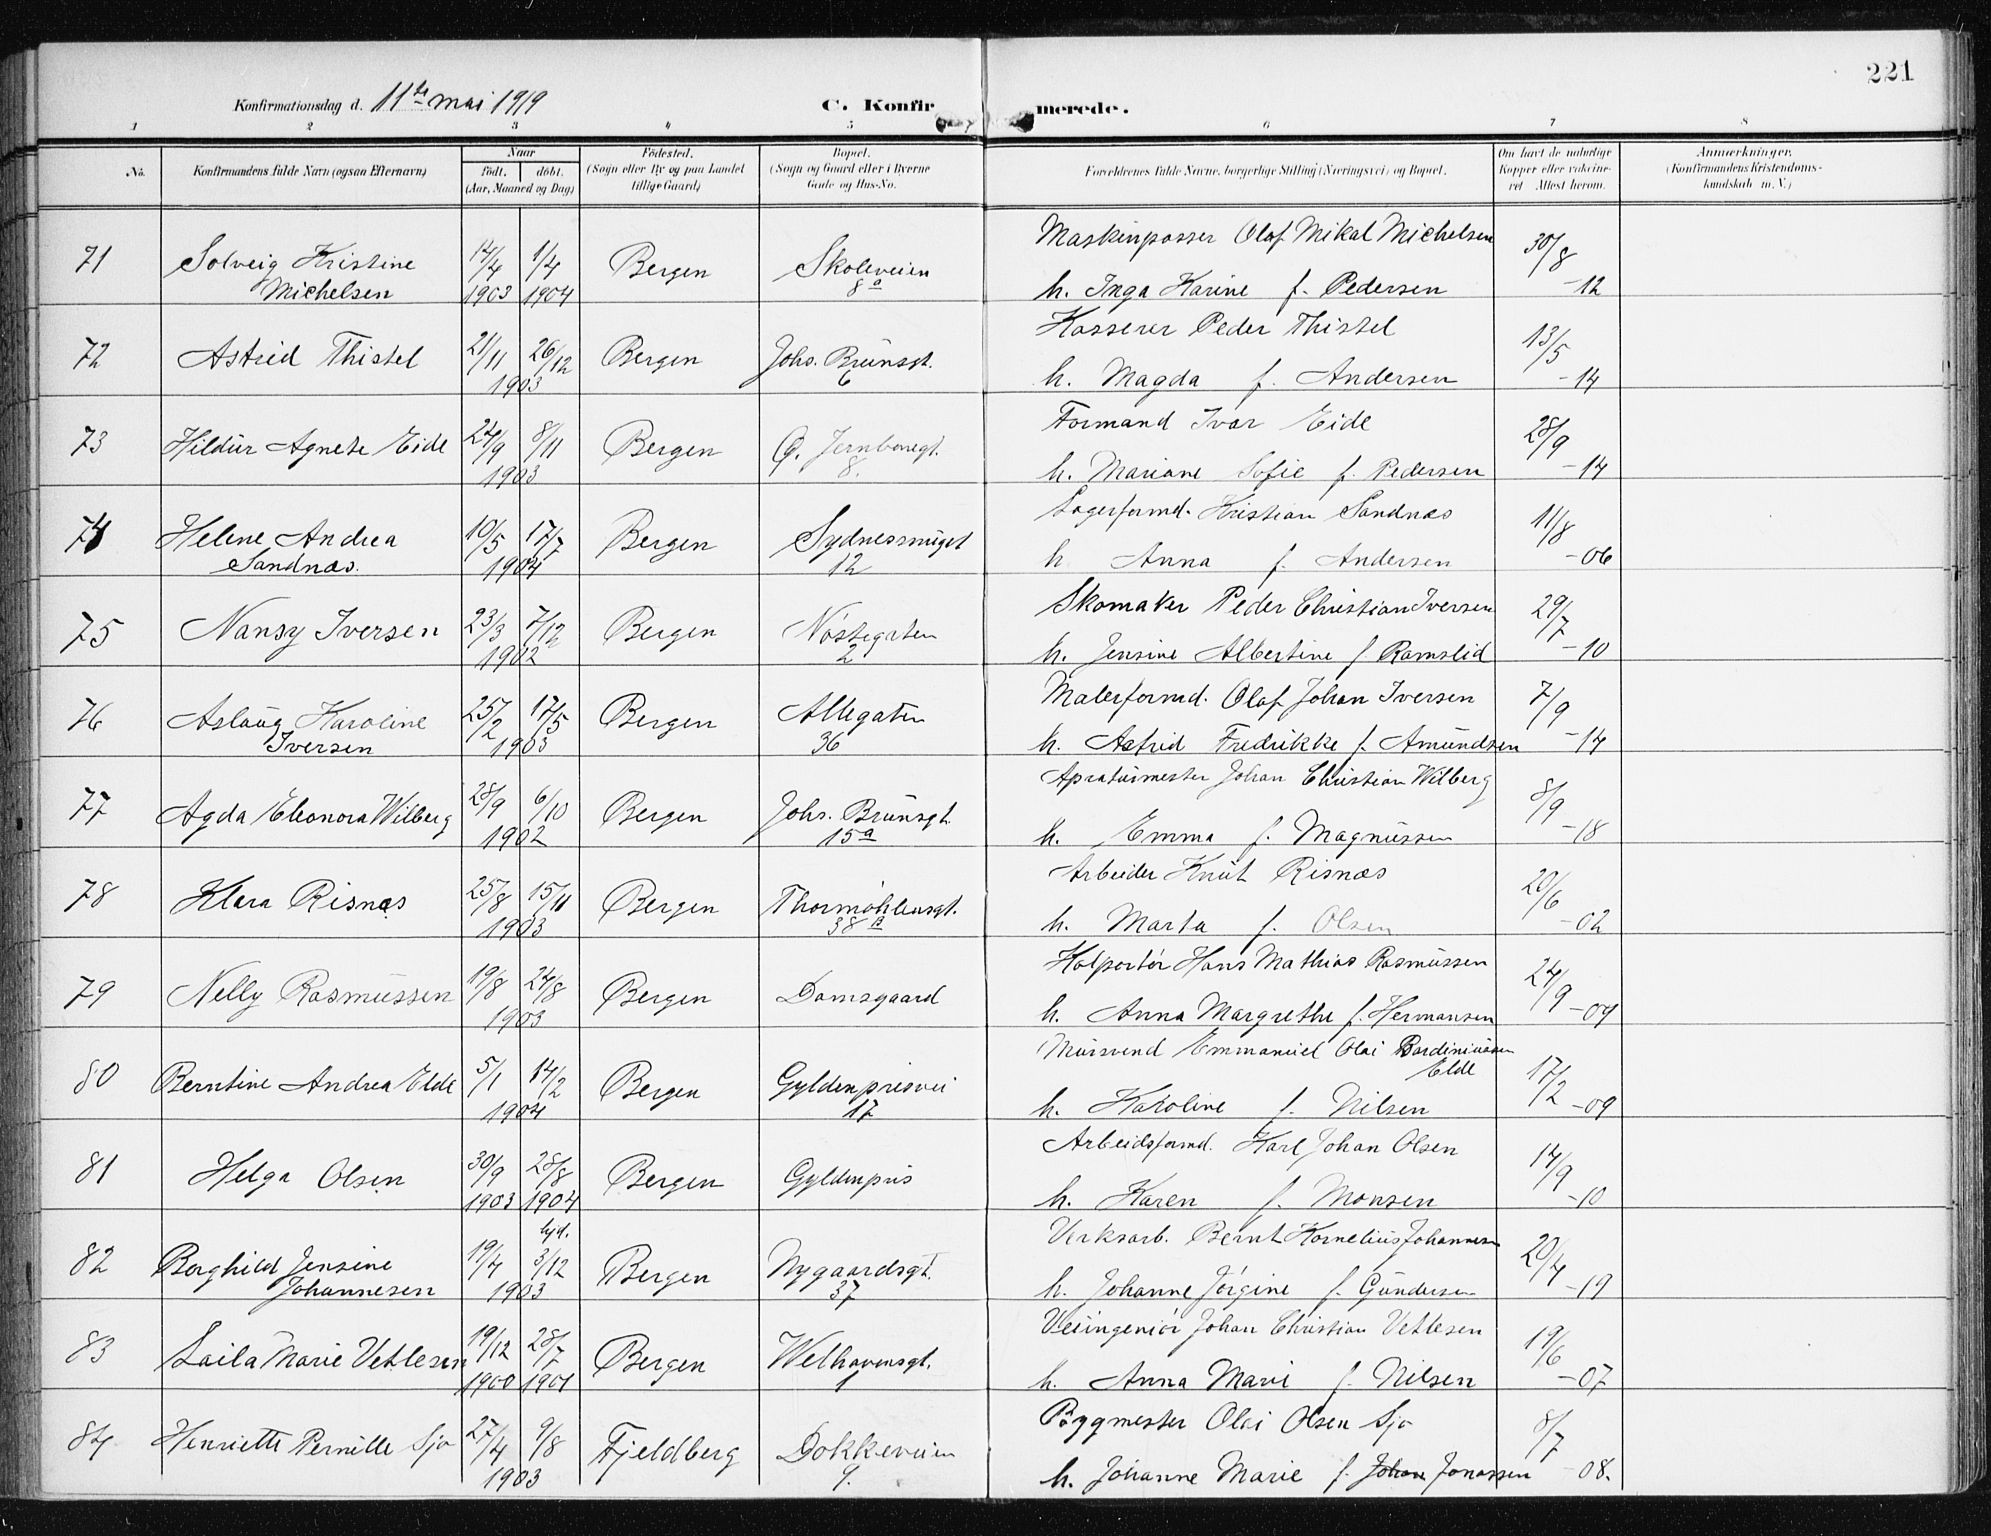 221
Konfirmationsdag d. 11te mai 1919 C. Konfirmerede.
1 2 3 4 5 6 7 8
No. Konfirmandens fulde Navn (ogsaa Efternavn) Naar født. døbt. (Aar, Maaned og Dag) Fødested. (Sogn eller By og paa Landet tillige Gaard) Bopæl. (Sogn og Gaard eller i Byerne Gade og Hus-No. Forældrenes fulde Navne, borgerlige Stilling (Næringsvei) og Bopæl. Om havt de naturlige Kopper eller vakcineret. Attest herom. Anmærkninger. (Konfirmandens Kristendomskundskab m. V.)
71 Solveig Kristine 14/4 1/4 Bergen Skoleveien Maskinpasser Olaf Mikal Michelsen 30/8
Michelsen 1903 1904 8a h. Inga Karine f. Pedersen -12
72 Astrid Thistel 21/11 26/12 Bergen Johs. Brünsgt. Kasserer Peder Thistel 13/5
1903 6 h. Magda f. Andersen -14
73 Hildur Agnete Eide 24/9 8/11 Bergen G. Jernbanegt. Formand Ivar Eide 28/9
1903 8. h. Mariane Sofie f. Pedersen -14
74 Helene Andrea 10/5 17/7 Bergen Sydnessmuget Lagerformd. Kristian Sandnæs 11/8
Sandnæs. 1904 12 h Anna f. Andersen -06
75 Nansy Iversen 23/3 7/12 Bergen Nøstegaten Skomaker Peder Christian Iversen 29/7
1902 2 h. Jensine Albertine f. Ramslid -10
76 Aslaug Karoline 25/2 17/5 Bergen Allegaten Malerformd. Olaf Johan Iversen 7/9
Iversen 1903 36 h. Astrid Fredrikke f. Amundsen -14
77 Agda Eleonora Wilberg 28/9 6/10 Bergen Johs. Brünsgt. Apratürmester Johan Christian Wilberg 8/9
1902 15a h. Emma f. Magnüssen -18
78 Klara Risnæs 25/8 15/11 Bergen Thormøhlensgt. Arbeider Knut Risnæs 20/6
1903 38B h. Marta f. Olsen -02
79 Nelly Rasmussen 19/8 24/8 Bergen Damsgaard Kolportør Hans Mathias Rasmussen 24/9
1903 h. Anna Margrethe f. Hermansen -09
80 Berntine Andrea Elde 5/1 14/2 Bergen Gyldenprisvei Mursvend Emmanuel Olai Bardiniussen Elde 17/2
1904 17 h. Karoline f. Nilsen -09
81 Helga Olsen 30/9 28/8 Bergen Gyldenpris Arbeidsformd. Karl Johan Olsen 14/9
1903 1904 h. Karen f. Monsen -10
82 Borghild Jensine 19/4 hjd. 3/12 Bergen Nygaardsgt. Verksarb. Bernt Kornelius Johannesen 20/4
Johannesen 1903 37 h. Johanne Jørgine f. Gundersen -19
83 Laila Marie Vetlesen 19/12 28/7 Bergen Welhavensgt. Veiingeniør Johan Christian Vetlesen 19/6
1900 1901 1 h. Anna Marie f. Nilsen -07
84 Henriette Pernille Sjo 27/4 9/8 Fjeldberg Dokkeveien Bygmester Olai Olsen Sjo 8/7
1903 9. h. Johanne Marie f. Johan Jonassen -08.